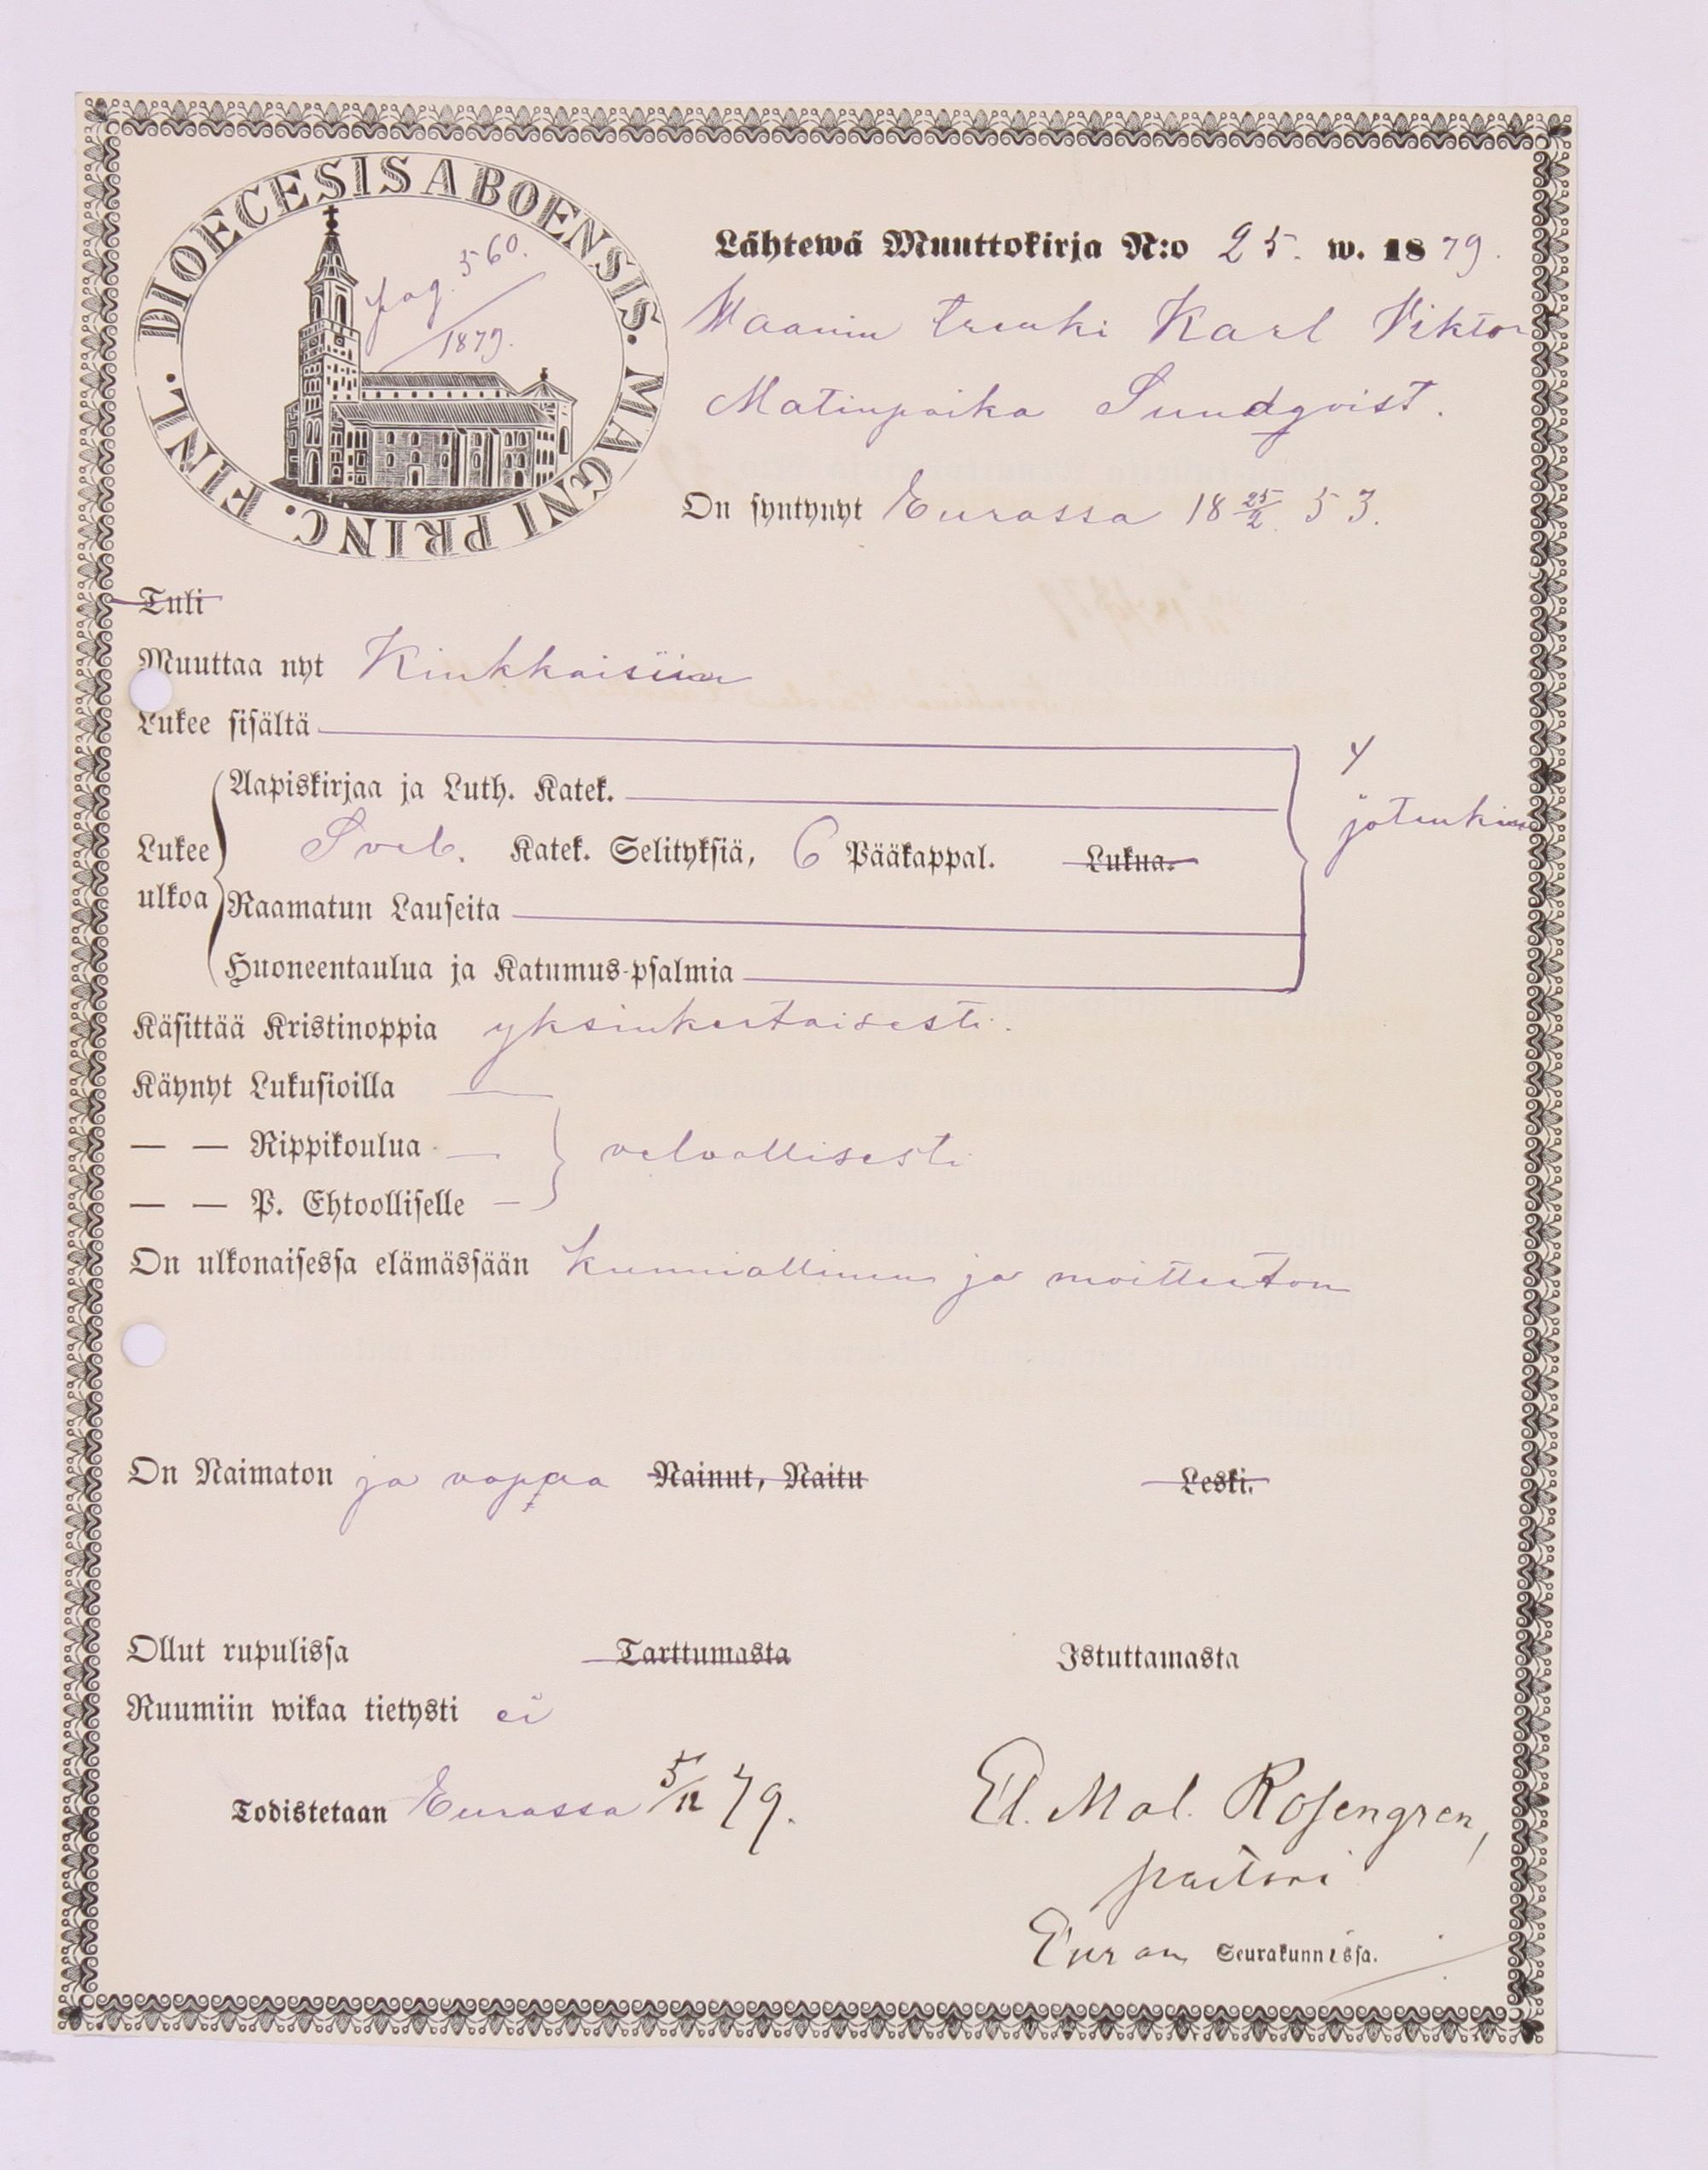 DIOECESIS ABOENSIS. MAGNI PRINC. FINL.
pag. 560.
1879.
Lähtewä Muuttokirja N:o 25. w. 1879.
Maanin trenki Karl Viktor
Matinpoika Sundqvist.
On syntynyt Eurassa 18 25/2 53.
Tuli
Muuttaa nyt Kiukkaisiin
Lukee sisältä
Aapiskirjaa ja Luth. Katek.
jotenkin
Lukee ulkoa
Sveb. Katek. Selityksiä, 6 Pääkappal. Lukua.
Raamatun Lauseita
Huoneentaulua ja Katumus-psalmia
Käsittää Kristinoppia yksinkertaisesti.
Käynyt Lukusioilla
— — Rippikoulua
velvollisesti
— — P. Ehtoolliselle
On ulkonaisessa elämässään kunniallinen ja moitteeton
On Naimaton ja vapaa Nainut, Naitu Leski.
Ollut rupulissa Tarttumasta Istuttamasta
Ruumiin wikaa tietysti ei
Todistetaan Eurassa 5/12 79.
Ed. Mal. Rosengren,
pastori
Euran Seurakunnissa.